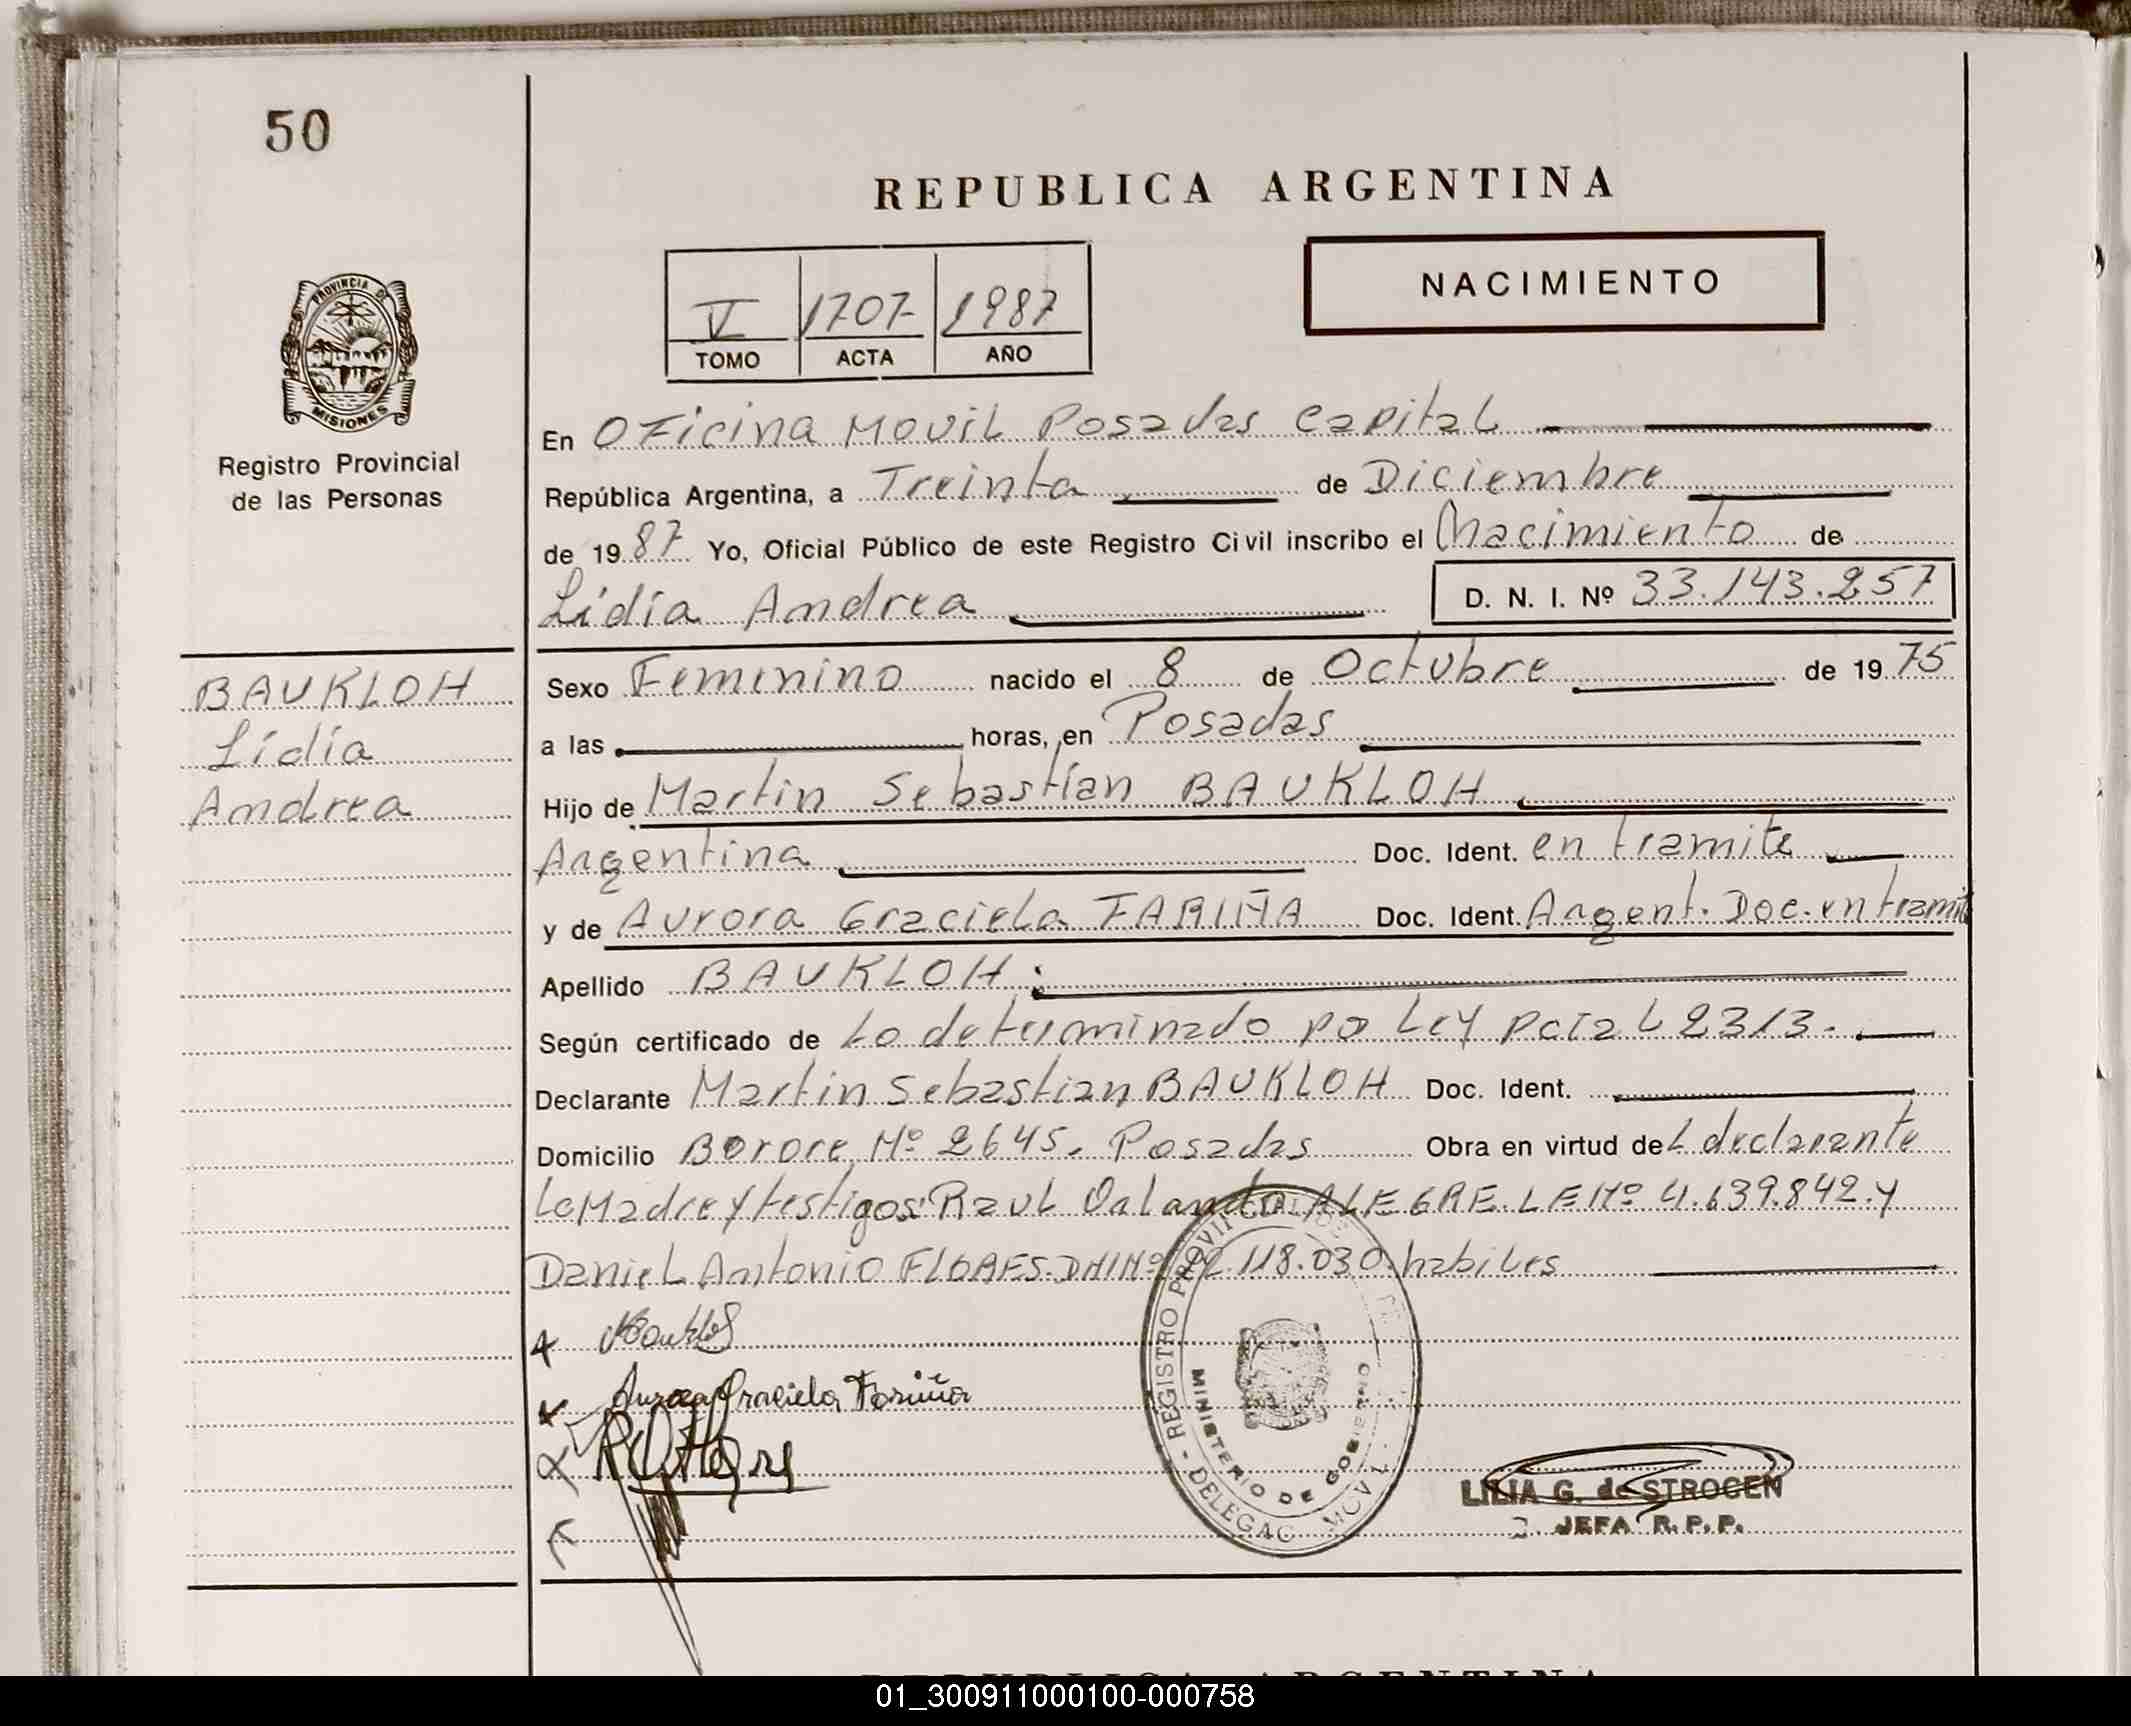 50
REPUBLICA ARGENTINA
NACIMIENTO
V 1707 1987
TOMO ACTA AÑO
PROVINCIA DE
MISIONES
Registro Provincial
de las Personas
En Oficina Movil Posadas Capital
República Argentina, a Treinta de Diciembre
de 1987 Yo, Oficial Público de este Registro Civil inscribo el Nacimiento de
Lidia Andrea D. N. I. Nº 33.143.257
BAUKLOH
Lidia
Andrea
Sexo Femenino nacido el 8 de Octubre de 1975
a las horas, en Posadas
Hijo de Martin Sebastian BAUKLOH
Argentina Doc. Ident. en tramite
y de Aurora Graciela FARIÑA Doc. Ident. Argent. Doc. en tramit
Apellido BAUKLOH
Según certificado de Lo determinado po Ley pcial 2313.
Declarante Martin Sebastian BAUKLOH Doc. Ident.
Domicilio Berore Nº 2645. Posadas Obra en virtud del declarante
La Madre y testigos: Raul Orlando ALEGRE. LE Nº 4.639.842. y
Daniel Antonio FLORES. DNI Nº 118.030. habiles
Aurora Graciela Fariña
REGISTRO PROVINCIAL DE
MINISTERIO DE GOBIERNO
DELEGAC MOVIL
LILIA G. de STROCEN
JEFA R.P.P.
REPUBLICA ARGENTINA
01_300911000100-000758